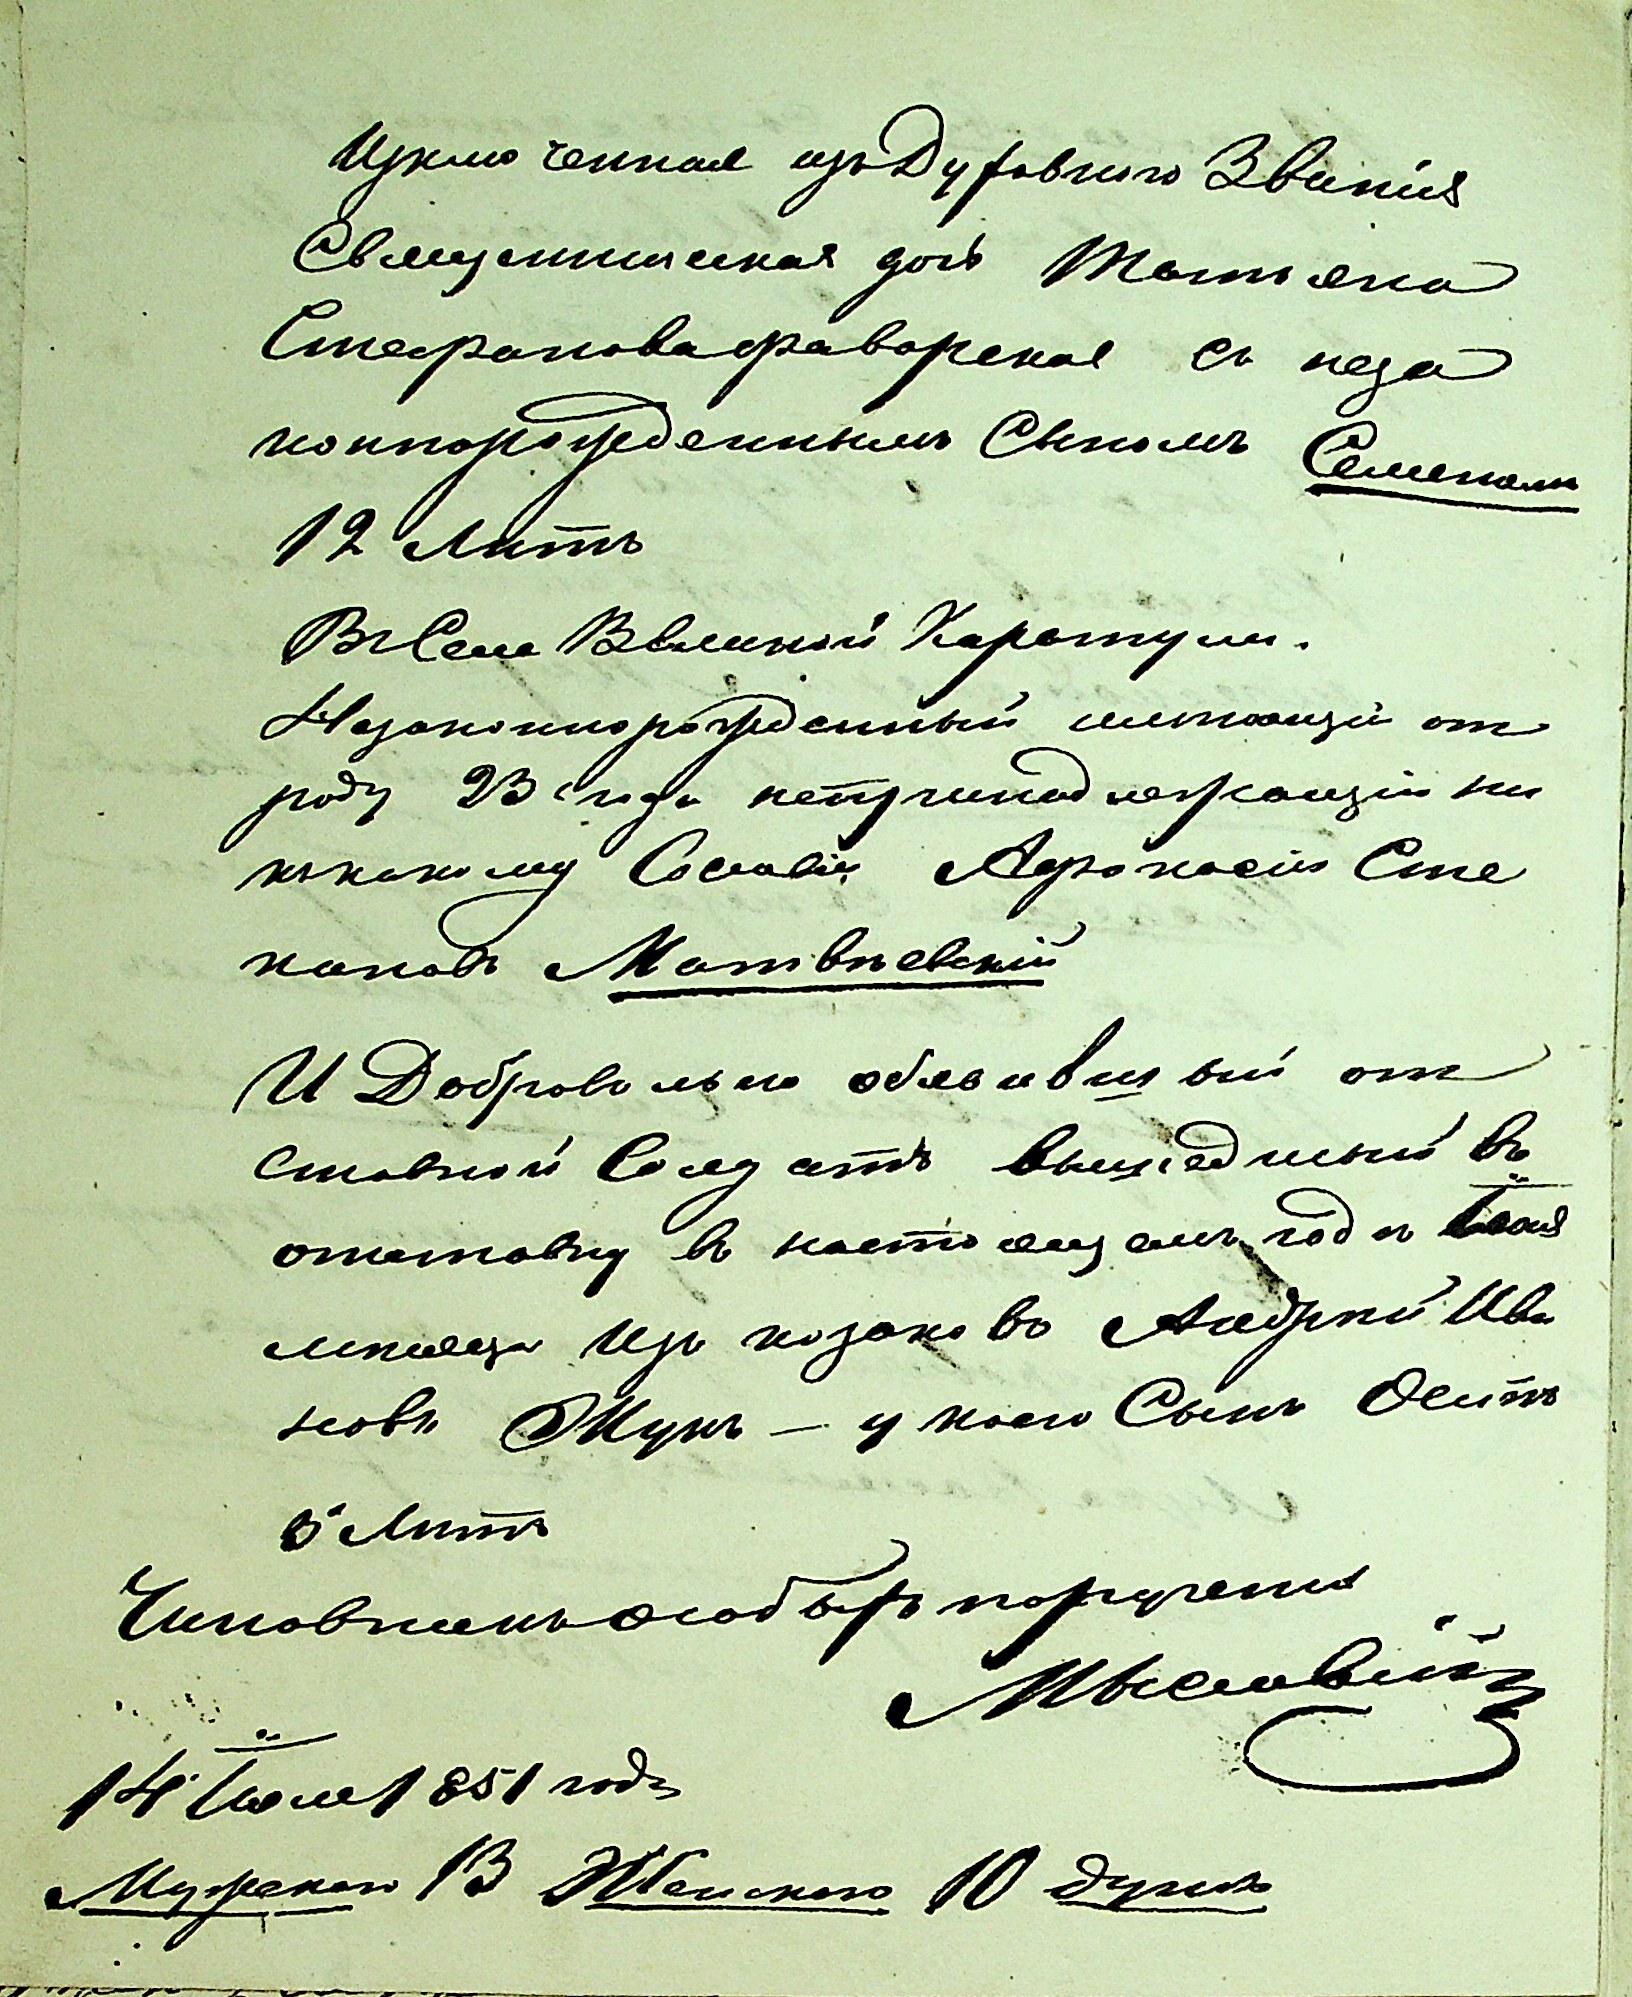 Изключенная изъ Духовного Звания
Священническая дочь Татьяна
Стефанова Фаворская съ неза
коннорожденнымъ Сыномъ Семеномъ
12 Лѣтъ
Въ Селѣ Великой Каратули.
Незаконнорожденный имѣющій отъ
роду 23 года непринадлежащій ни
къ какому Сословію Афонасій Сте
пановъ Матвѣевскій
И Добровольно объявившій от
ставной Солдатъ вышедшый въ
отставку въ настоящемъ годѣ Іюня
мѣсяца Изъ козаковъ Андрей Ива
новъ Жукъ — у коего Сынъ Осипъ
8 Лѣтъ
Чиновникъ особыхъ порученій
14 Іюля 1851 года
Мужеского 13 Женского 10 душъ